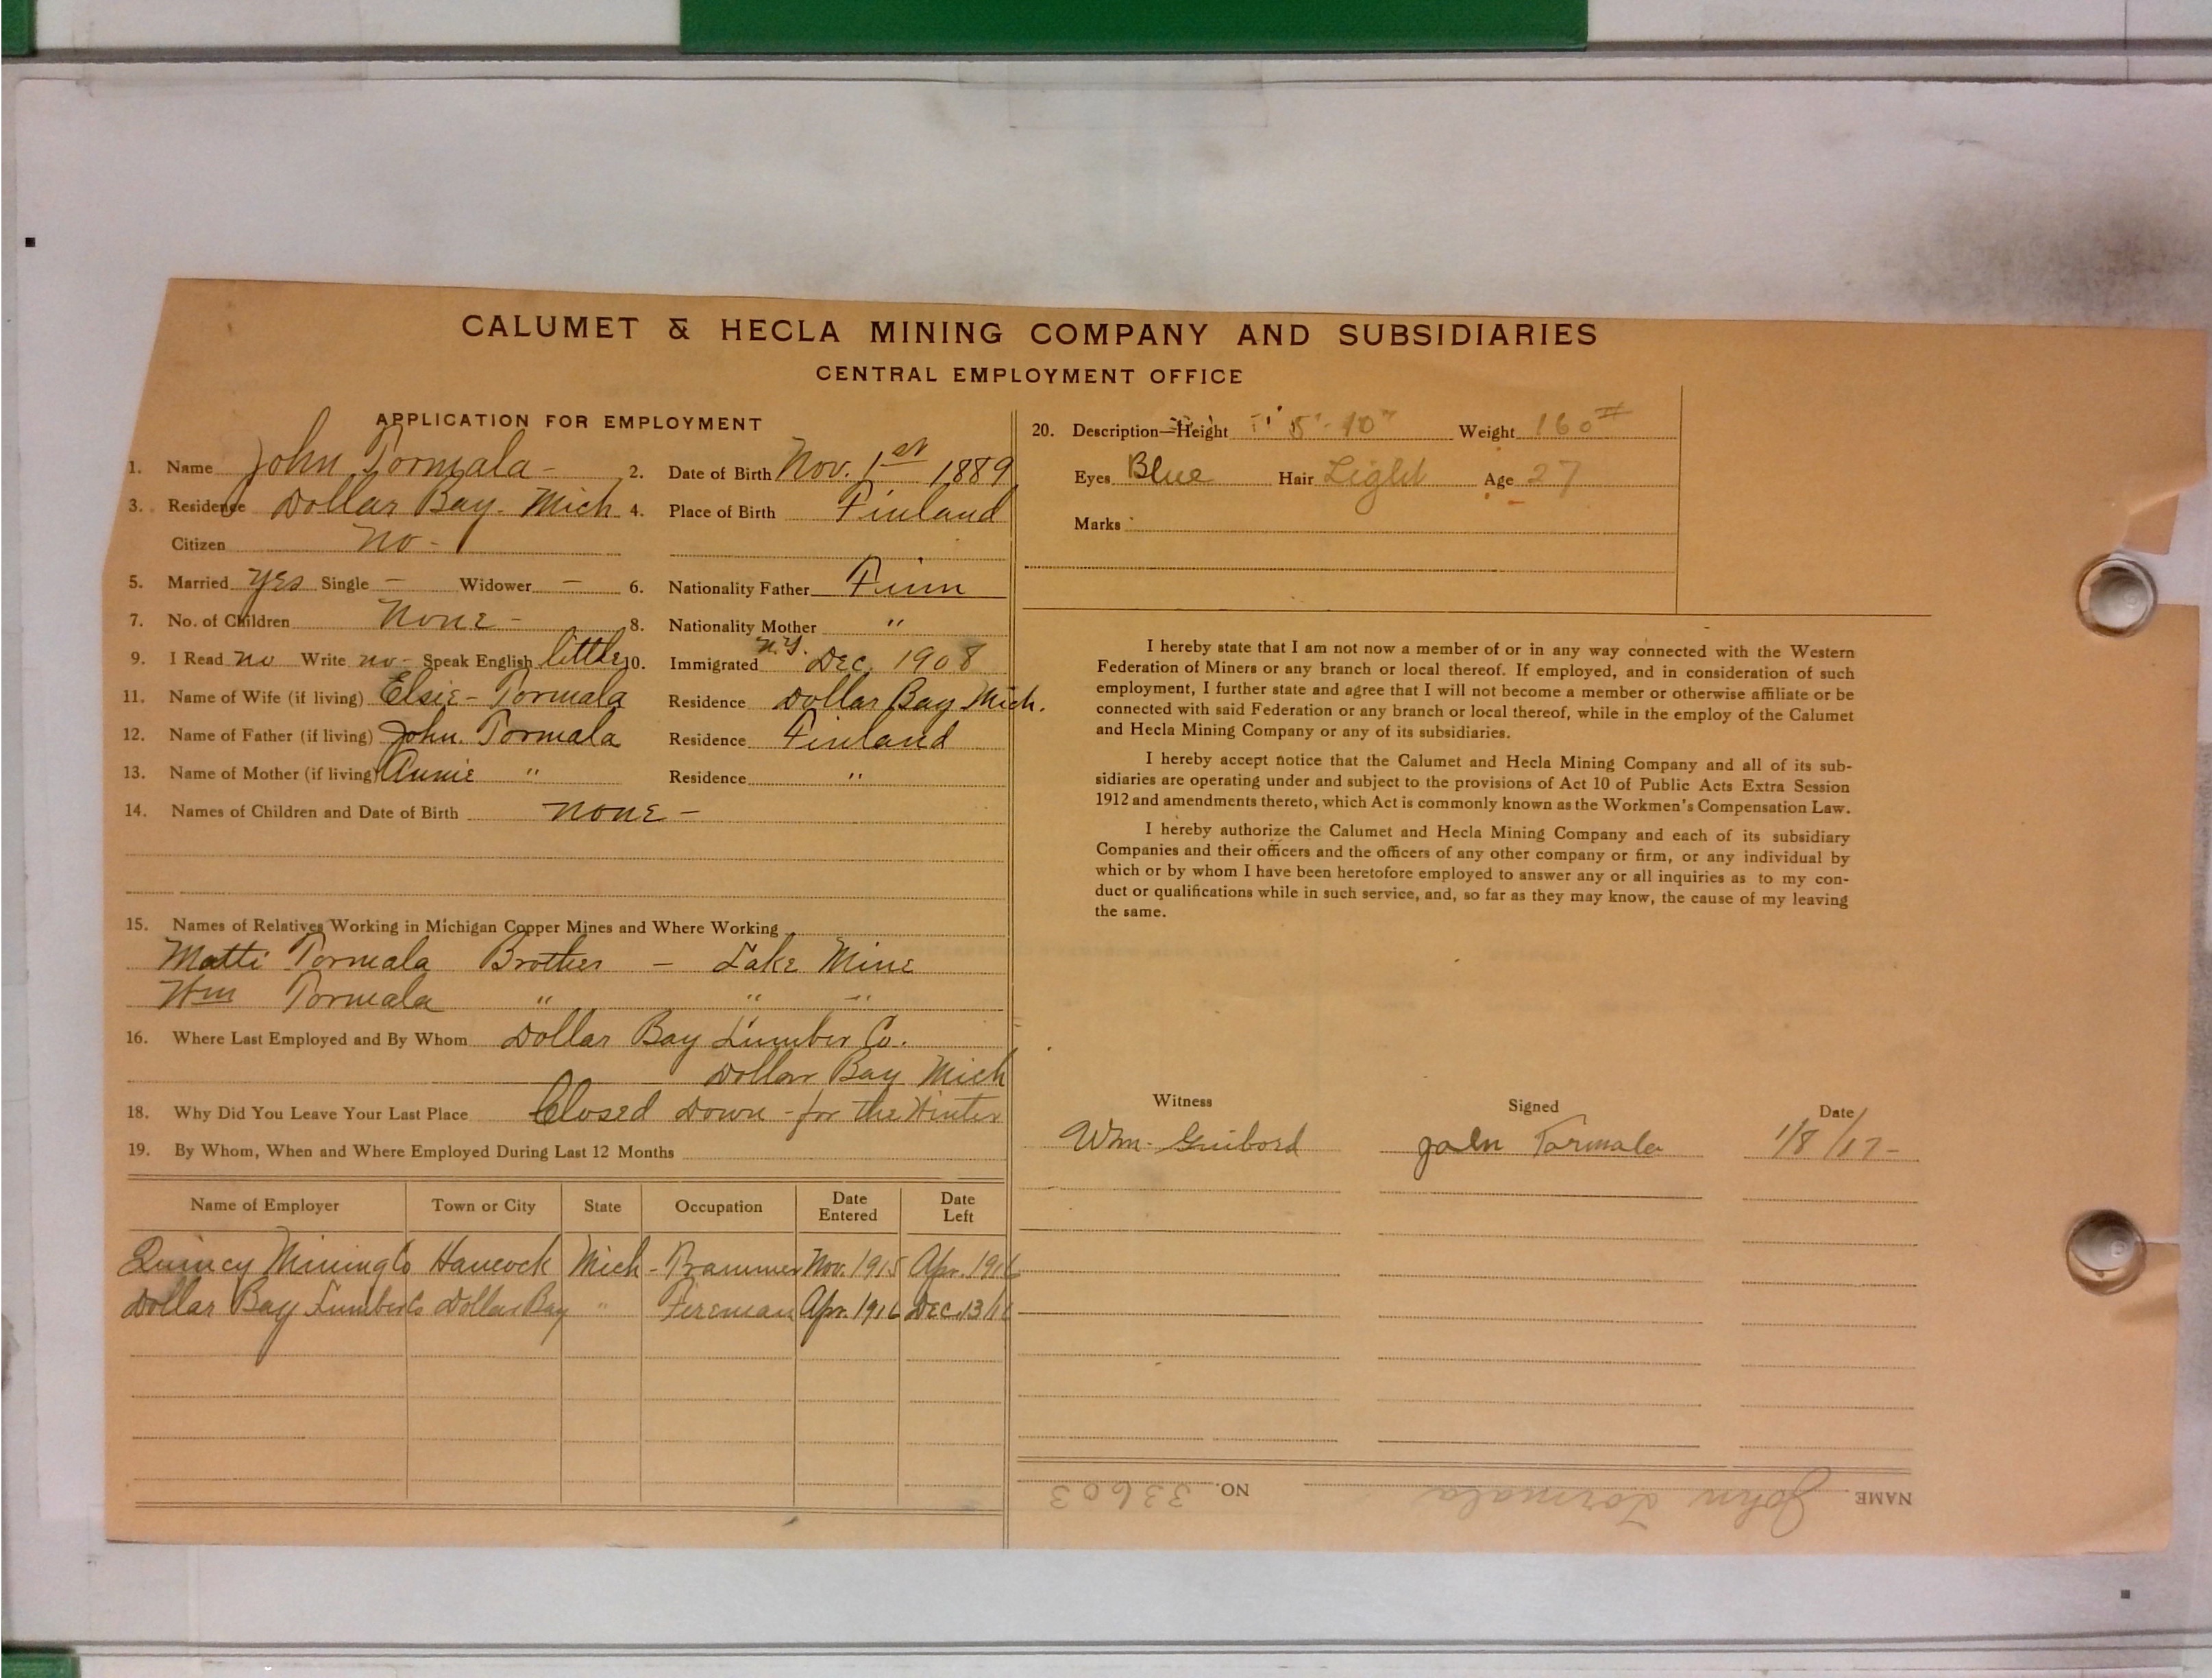 CALUMET & HECLA MINING COMPANY AND SUBSIDIARIES
CENTRAL EMPLOYMENT OFFICE
APPLICATION FOR EMPLOYMENT
1. Name John Tormala - 2. Date of Birth Nov. 1st 1889
3. Residence Dollar Bay. Mich 4. Place of Birth Finland
Citizen no -
5. Married yes Single - Widower - 6. Nationality Father Finn
7. No. of Children none - 8. Nationality Mother "
9. I Read no Write no - Speak English little 10. Immigrated N.Y. Dec. 1908
11. Name of Wife (if living) Elsie - Tormala Residence Dollar Bay Mich.
12. Name of Father (if living) John. Tormala Residence Finland
13. Name of Mother (if living) Annie " Residence "
14. Names of Children and Date of Birth none -
15. Names of Relatives Working in Michigan Copper Mines and Where Working
Matti Tormala Brother - Lake Mine
Wm Tormala " " "
16. Where Last Employed and By Whom Dollar Bay Lumber Co.
Dollar Bay Mich
18. Why Did You Leave Your Last Place Closed down - for the Winter
19. By Whom, When and Where Employed During Last 12 Months
Name of Employer Town or City State Occupation Date Entered Date Left
Quincy Mining Co Hancock Mich - Trammer Nov. 1915 Apr. 1916
Dollar Bay Lumber Co Dollar Bay " Fireman Apr. 1916 Dec. 13/16
20. Description—Height 5' 10" Weight 160#
Eyes Blue Hair Light Age 27
Marks
I hereby state that I am not now a member of or in any way connected with the Western
Federation of Miners or any branch or local thereof. If employed, and in consideration of such
employment, I further state and agree that I will not become a member or otherwise affiliate or be
connected with said Federation or any branch or local thereof, while in the employ of the Calumet
and Hecla Mining Company or any of its subsidiaries.
I hereby accept notice that the Calumet and Hecla Mining Company and all of its sub-
sidiaries are operating under and subject to the provisions of Act 10 of Public Acts Extra Session
1912 and amendments thereto, which Act is commonly known as the Workmen's Compensation Law.
I hereby authorize the Calumet and Hecla Mining Company and each of its subsidiary
Companies and their officers and the officers of any other company or firm, or any individual by
which or by whom I have been heretofore employed to answer any or all inquiries as to my con-
duct or qualifications while in such service, and, so far as they may know, the cause of my leaving
the same.
Witness Signed Date
Wm. Guibord John Tormala 1/8/17 -
NAME John Tormala NO. 33603